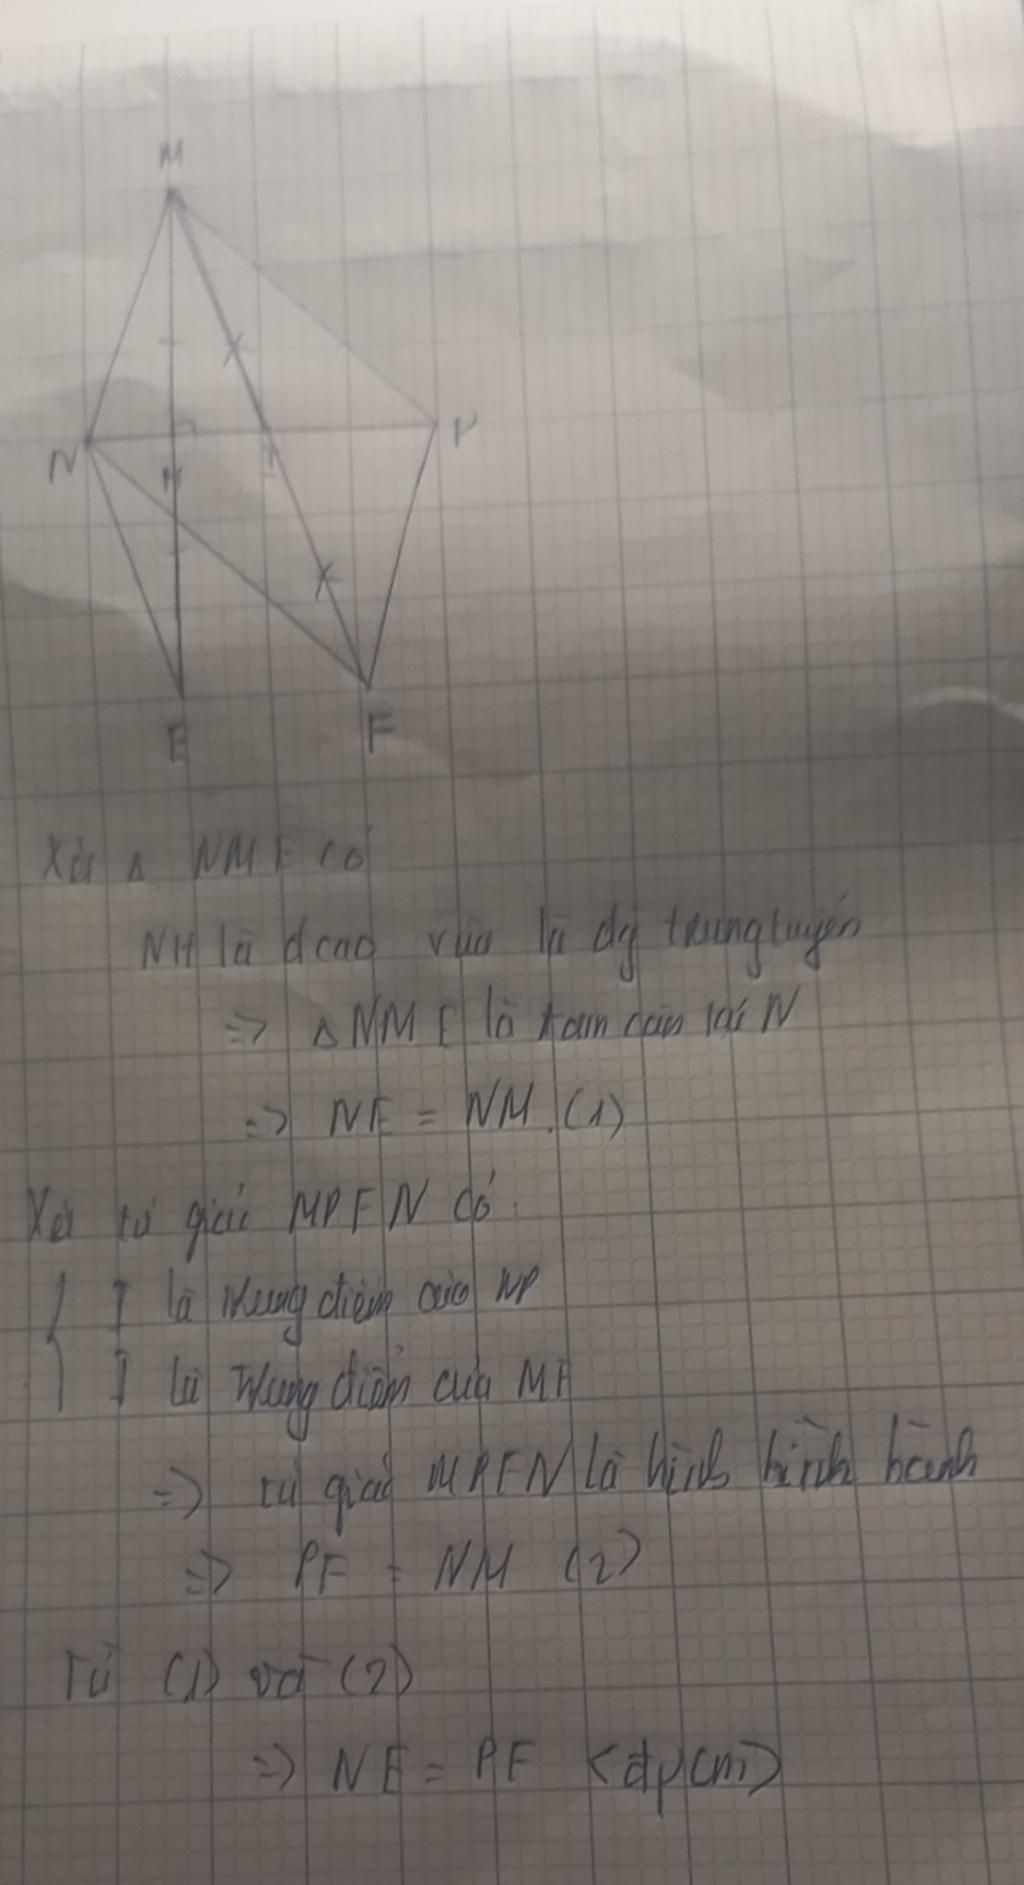 M
N
H
I
P
E
F
Xét Δ NME có
NH là đcao vừa là đg trung tuyến
=> Δ NME là tam cân tại N
=> NE = NM. (1)
Xét tứ giác MPFN có:
{ I là trung điểm của NP
I là trung điểm của MF
=> tứ giác MPFN là hình bình hành
=> PF = NM (2)
Từ (1) và (2)
=> NE = PF <đpcm>